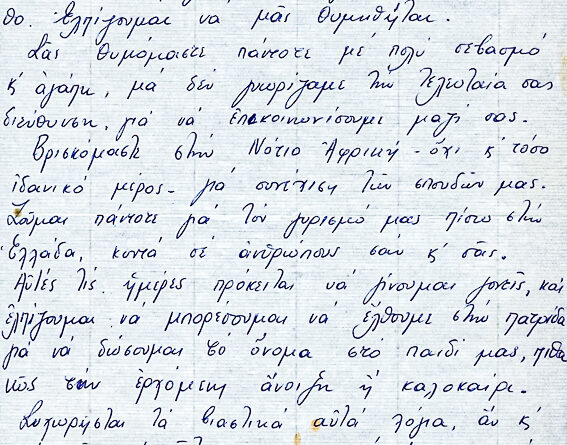 θο. Ἐλπίζουμαι να μᾶς θυμηθῆται.
Σᾶς θυμόμαστε πάντοτε μέ πολύ σεβασμό
κ' ἀγάπη, μά δέν γνωρίζαμε τήν τελευταία σας
διεύθυνση, γιά νά ἐπικοινωνίσουμε μαζί σας.
Βρισκόμαστε στήν Νότιο Ἀφρική - ὄχι κ' τόσο
ἰδανικό μέρος - γιά συνέχιση τῶν σπουδῶν μας.
Ζοῦμαι πάντοτε γιά τόν γυρισμό μας πίσω στήν
Ἑλλάδα, κοντά σέ ἀνθρώπους σάν κ' σᾶς.
Αὐτές τίς ἡμέρες πρόκειται νά γίνουμαι γονεῖς, καί
ἐλπίζουμαι νά μπορέσουμαι νά ἔλθουμε στήν πατρίδα
γιά νά δώσουμαι τό ὄνομα στό παιδί μας, πιθα
νῶς τήν ἐρχόμενη ἄνοιξη ἤ καλοκαίρι.
Συχωρῆσται τά βιαστικά αὐτά λόγια, ἄν κ'